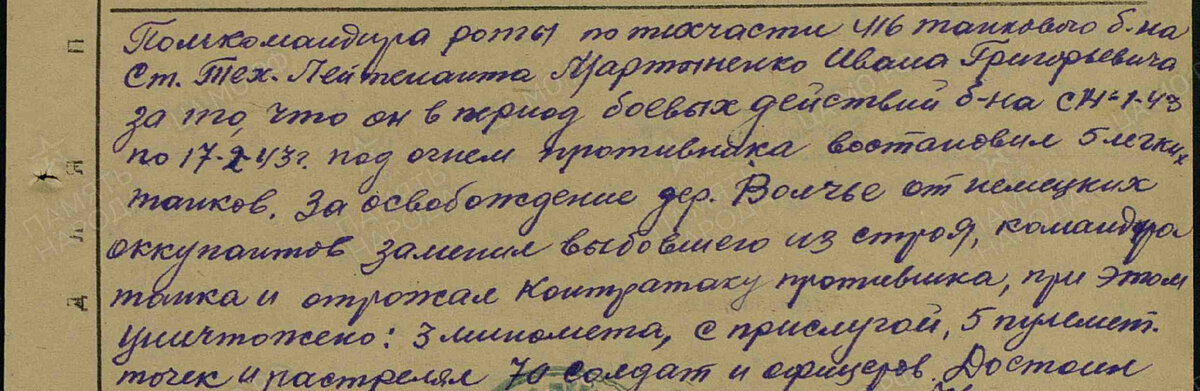 Помкомандира роты по техчасти 416 танкового б-на
Ст. Тех. Лейтенанта Мартыненко Ивана Григорьевича
за то, что он в период боевых действий б-на с 1-43
по 17-2-43г. под огнем противника востановил 5 легких
танков. За освобождение дер. Волчье от немецких
оккупантов заменил выбовшего из строя, командира
танка и отрожал контратаку противника, при этом
уничтожено: 3 миномета, с прислугой, 5 пулемет.
точек и растрелял 70 солдат и офицеров. Достоин
П
Я
Л
Д
ПАМЯТЬ
НАРОДА